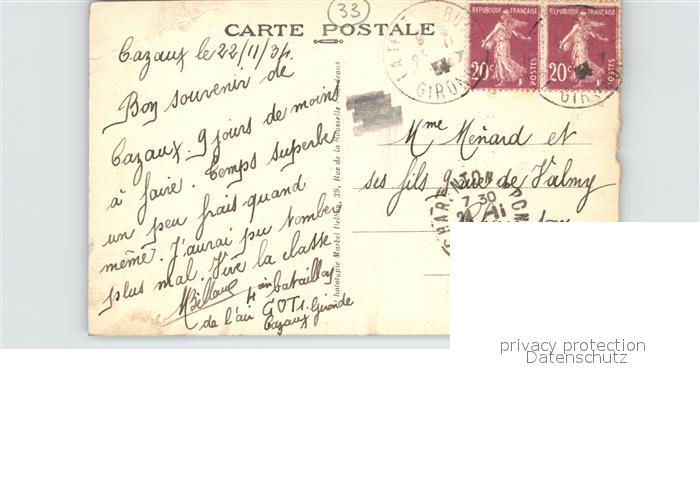 CARTE POSTALE
33
Cazaux le 22/11/34.
Bon souvenir de
Cazaux. 9 jours de moins
à faire. Temps superbe
un peu frais quand
même. J'aurai pu tomber
plus mal. Vive la classe
4ème bataillon
de l'air
Cazaux Gironde
Mme Ménard et
ses fils 9 rue de Valmy
RÉPUBLIQUE FRANÇAISE
20c POSTES
RÉPUBLIQUE FRANÇAISE
20c POSTES
GIRONDE
CHARENTON
7 30
Phototypie Marcel Delboy, 39, Rue de la Rousselle - Bordeaux
privacy protection
Datenschutz